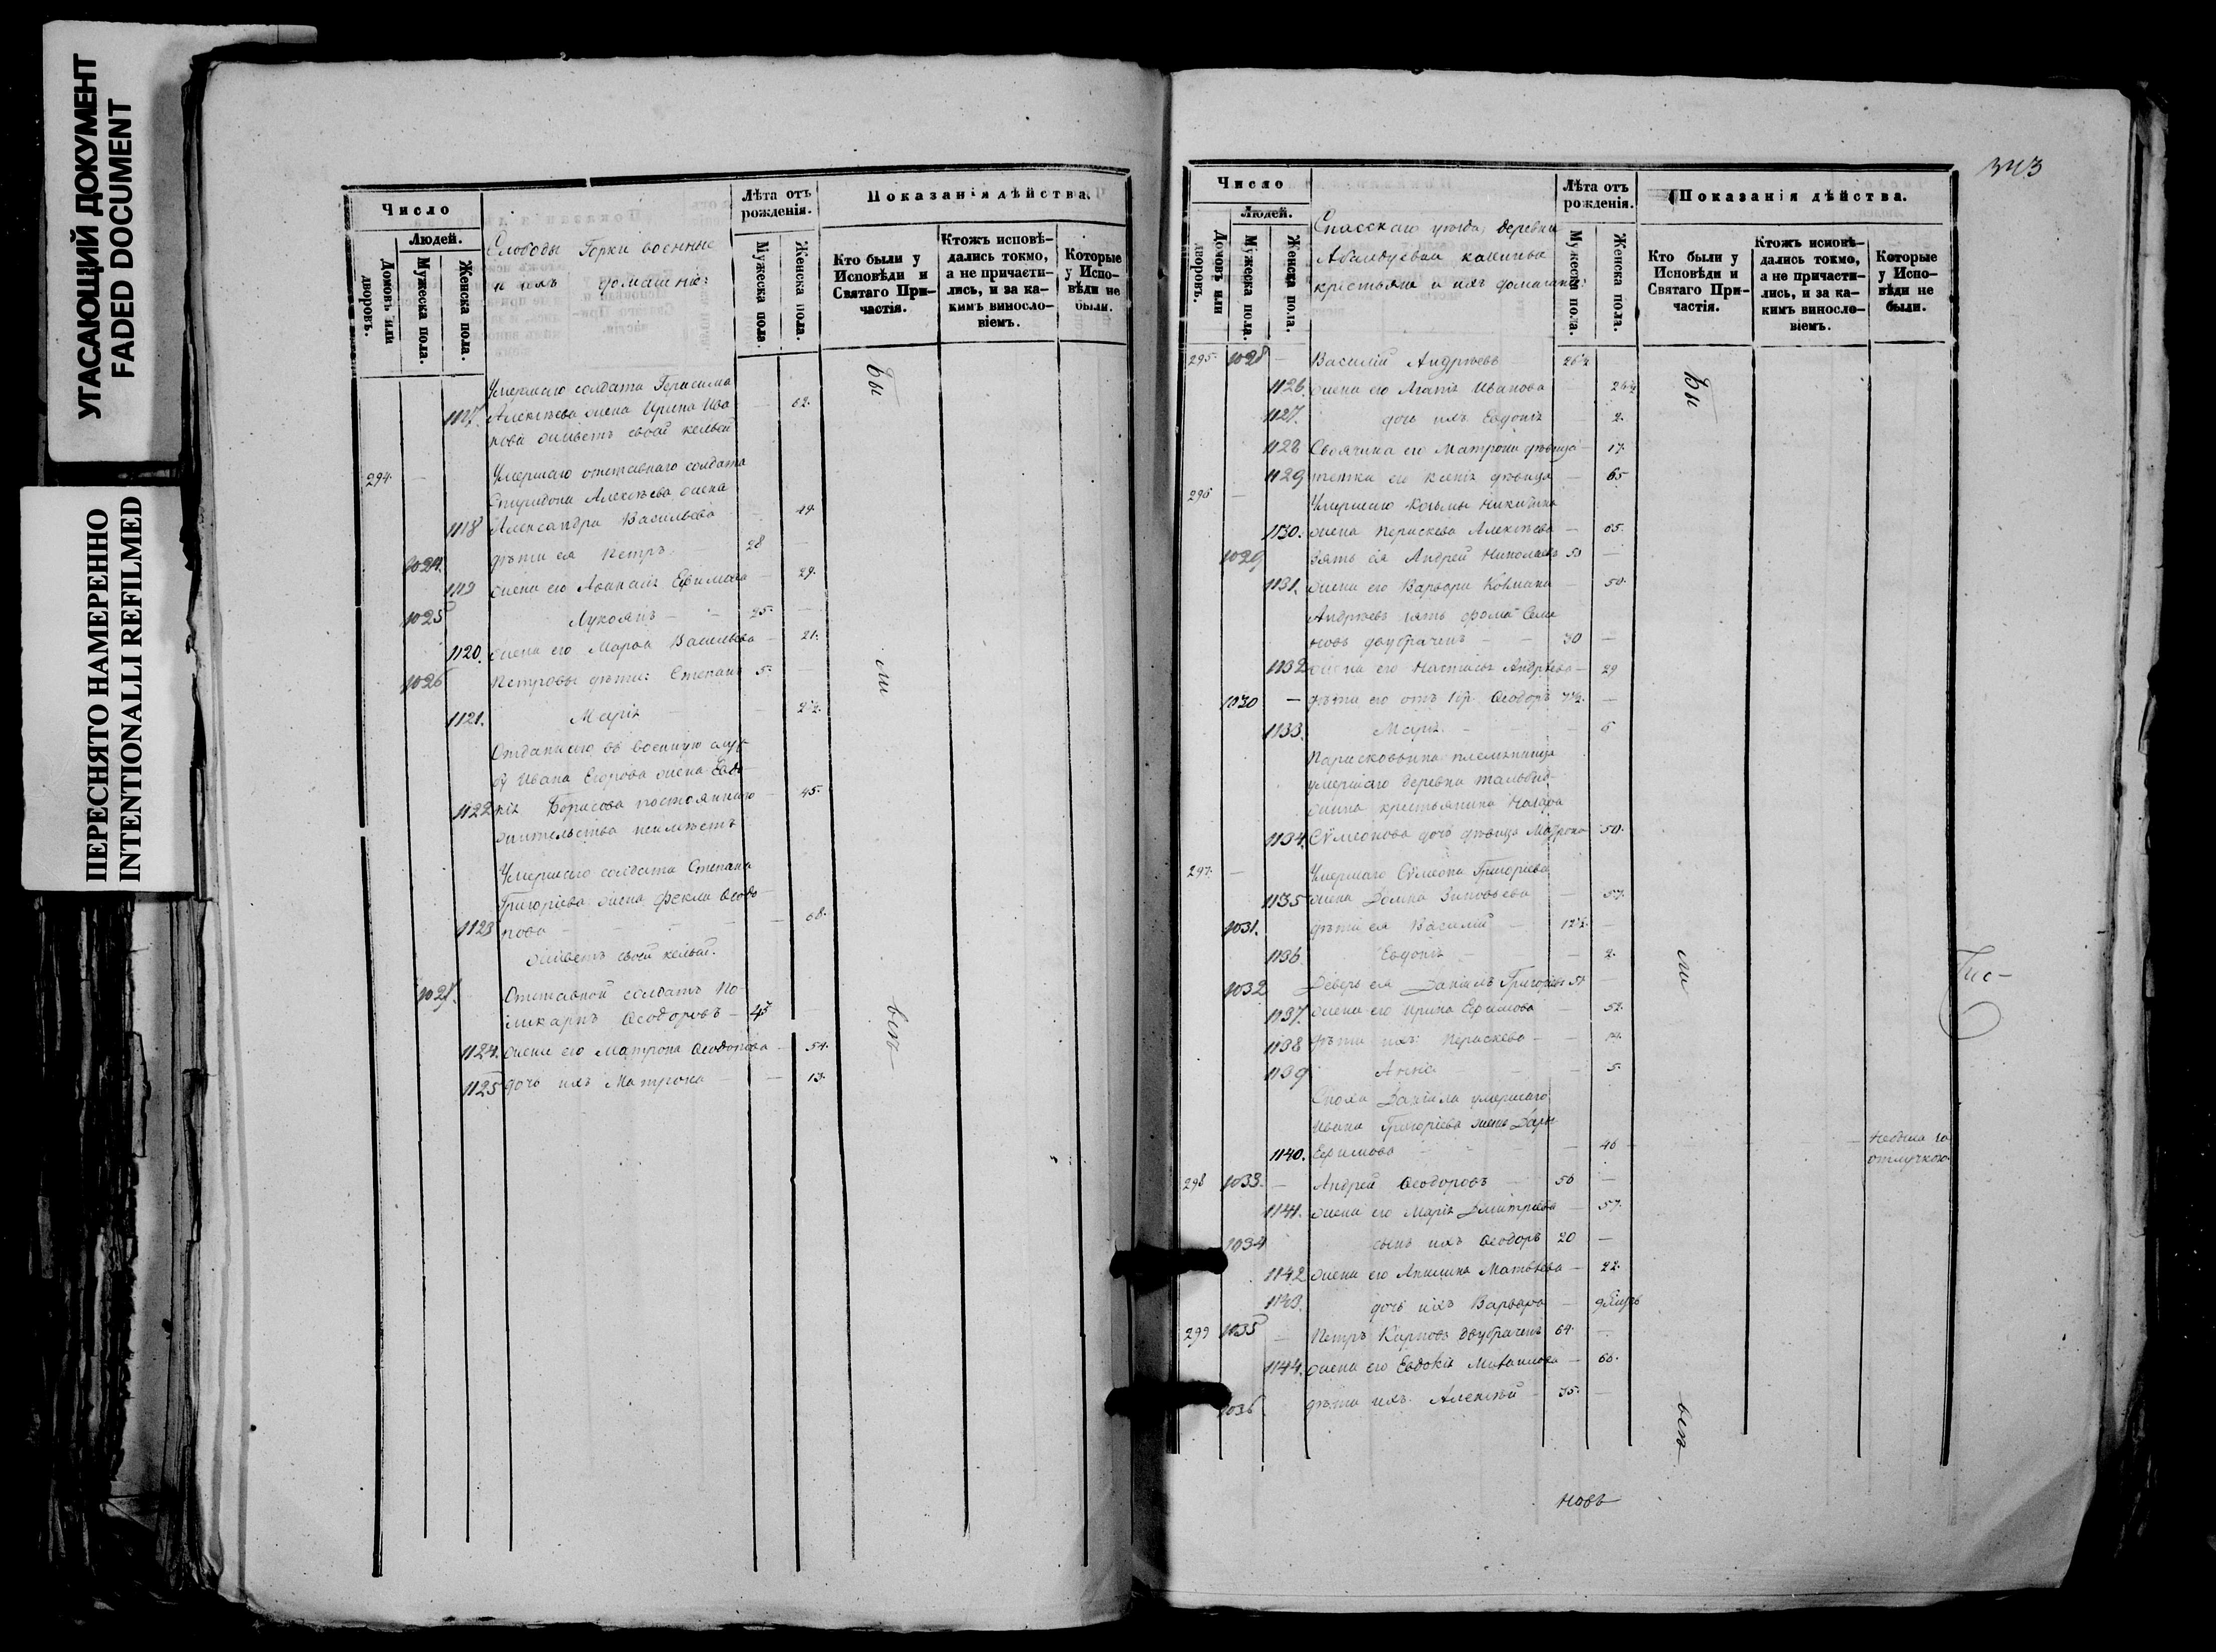 УГАСАЮЩИЙ ДОКУМЕНТ
FADED DOCUMENT
ПЕРЕСНЯТО НАМЕРЕННО
INTENTIONALLI REFILMED
Число
Людей.
Домовъ или дворовъ.
Мужеска пола.
Женска пола.
Слободы Горки военные
и ихъ домашніе:
Лѣта отъ рожденія.
Мужеска пола.
Женска пола.
Показанія дѣйства.
Кто были у Исповѣди и Святаго Причастія.
Ктожъ исповѣдались токмо, а не причастились, и за какимъ винословіемъ.
Которые у Исповѣди не были.
Умершаго солдата Герасима
1117. Алексѣева жена Ирина Ива — 62.
нова живетъ своей кельей
294. — Умершаго отставнаго солдата
Спиридона Алексѣева жена
1118 Александра Васильева — 49.
1024. дѣти ея Петръ 28 —
1119 жена его Афанасія Ефимова — 29.
1025 Лукоянъ — 25. —
1120. жена его Марфа Васильева — 21.
1026 Петровы дѣти: Степанъ 5. —
1121. Марія — 2½.
Отданнаго въ военную служ
бу Ивана Егорова жена Евдо
1122 кія Борисова постояннаго — 45.
жительства неимѣетъ
Умершаго солдата Степана
Григоріева жена Фекла Ѳедо
1123 рова — 68.
живетъ своей кельей.
1027. Отставной солдатъ По
ликарпъ Ѳеодоровъ — 45
1124. жена его Матрона Ѳеодорова — 54.
1125 дочь ихъ Матрона — 13.
Бы
ли
всѣ
343
Число
Людей.
Домовъ или дворовъ.
Мужеска пола.
Женска пола.
Спасскаго уѣзда, деревни
крестьяне и ихъ домашніе:
Лѣта отъ рожденія.
Мужеска пола.
Женска пола.
Показанія дѣйства.
Кто были у Исповѣди и Святаго Причастія.
Ктожъ исповѣдались токмо, а не причастились, и за какимъ винословіемъ.
Которые у Исповѣди не были.
295. 1028 — Василій Андреевъ 26½
1126. жена его Агапія Иванова — 26½
1127. дочь ихъ Евдокія 2.
1128 Своячина его Матрона дѣвица — 17.
1129 тетка его Ксенія дѣвица — 65
296 — Умершаго Козьмы Никитина
1130. жена Параскева Алексѣева — 65.
1029 зять ея Андрей Николаевъ 50 —
1131. жена его Варвара Козмина — 50.
Андреевъ зять Фома Семе
новъ двубраченъ — 30 —
1132 жена его Настасья Андреева — 29
1030 — дѣти его отъ 1 бр. Ѳеодоръ 7½. —
1133. Марія. — 5
Парасковьина племянница
умершаго деревни
крестьянина Назара
1134. Сѵмеонова дочь дѣвица Матрона 50.
297. — Умершаго Сѵмеона Григоріева
1135 жена Домна Зиновьева — 57.
1031. дѣти ея Василій — 12½ —
1136 Евдокія — 2.
1032 Деверь ея Даніилъ Григорьевъ 54 —
1137. жена его Ирина Ефимова — 52.
1138 дѣти ихъ: Параскева —
1139 Анна — 5.
Сноха Даніила умершаго
Ивана Григоріева жена Дарья
1140. Ефимова — 46 — Небыла за
отлучкою.
298 1033. — Андрей Ѳеодоровъ — 56 —
1141. жена его Марія Дмитріева — 57.
1034 сынъ ихъ Ѳеодоръ 20 —
1142 жена его Акилина Матвѣева — 22.
1143. дочь ихъ Варвара —
299 1035 — Петръ Карповъ двубраченъ 64. —
1144. жена его Евдокія Михайлова — 66.
1036 дѣти ихъ: Алексѣй — 35. —
Бы
ли
всѣ
новъ